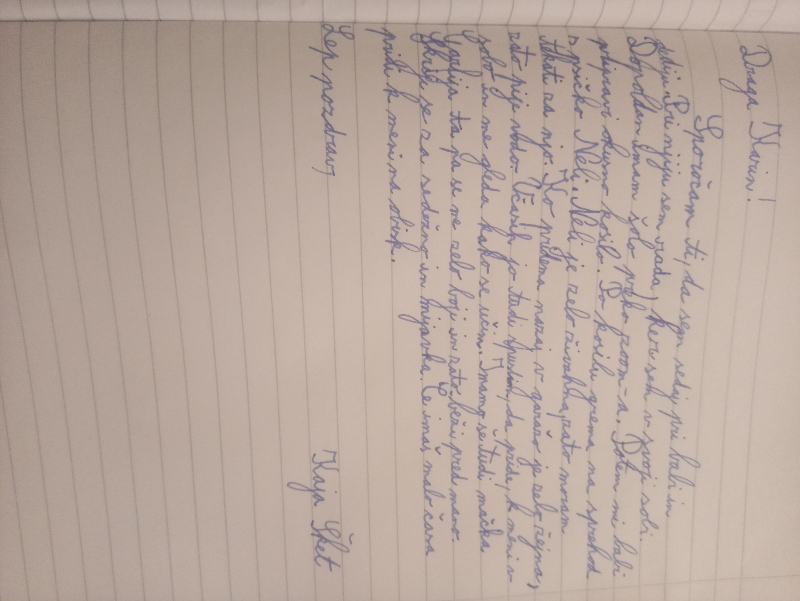 Draga Karin!
Sporočam ti, da sem sedaj pri babi in
dediju. Pri njiju sem rada, ker sem v svoji sobi.
Dopoldan imam šolo preko zoom-a. Potem mi babi
pripravi okusno kosilo. Po kosilu grema na sprehod
s psičko Neli. Neli je zelo živahna, zato moram
tekati za njo. Ko pridema nazaj v garažo je zelo žejna,
zato pije vodo. Včasih jo tudi spustim, da pride k meni v
sobo in me gleda kako se učim. Imamo še tudi mačka
ta pa se me zelo boji in zato beži pred mano.
Skrije se za sedežno in mijavka. Če imaš malo časa
pridi k meni na obisk.
Lep pozdrav,
Kaja Šket